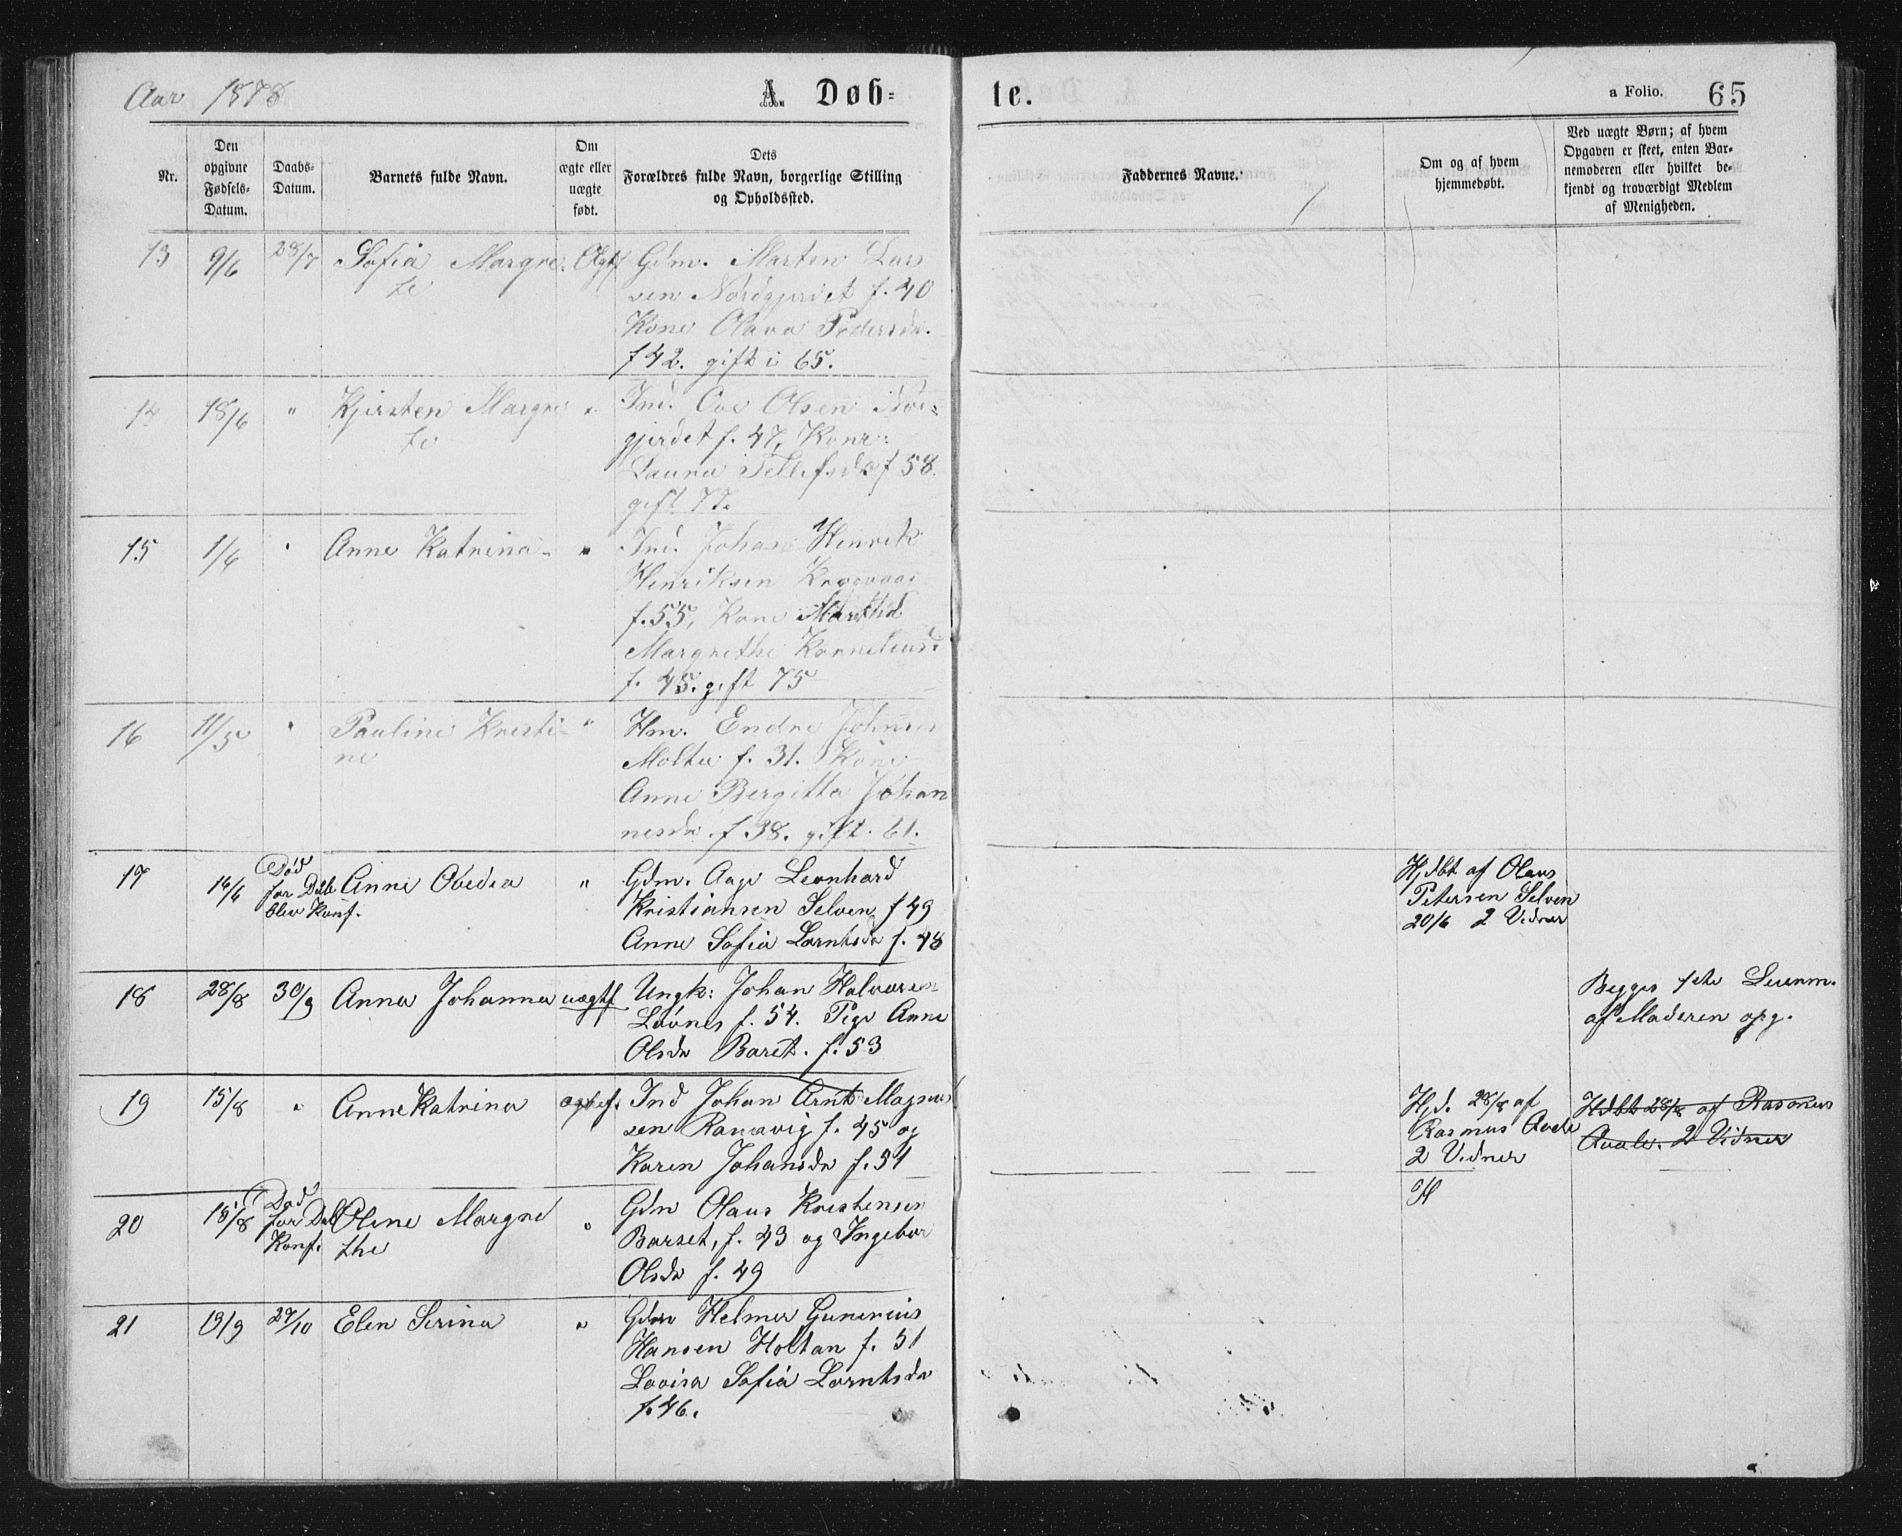 Aar 1878
A. Døb-
te.
a Folio.
65
Nr.
Den opgivne Fødsels-Datum.
Daabs-Datum.
Barnets fulde Navn.
Om ægte eller uægte født.
Dets Forældres fulde Navn, borgerlige Stilling og Opholdssted.
Faddernes Navne.
Om og af hvem hjemmedøbt.
Ved uægte Børn; af hvem Opgaven er skeet, enten Barnemoderen eller hvilket bekjendt og troværdigt Medlem af Menigheden.
13 9/6 28/7 Sofia Margre- Ægtf Gdm. Morten Lars
te sen Nordgjerdet f. 40
Kone Olava Pedersdr.
f 42. gift i 65.
14 18/6 " Kjirsten Margre " Ind. Ove Olsen Nor-
te gjerdet f. 47, Kone:
Laura Tellefsdr f 58.
gift 77.
15 1/6 " Anne Katrina " Ind. Johan Henrik
Henriksen
f. 55, Kone
Margrethe Korneliusd.
f. 45. gift 75
16 11/5 " Pauline Kristi- " Hm. Endre Johnsen
ne Molta f. 31. Kone
Anne Bergitta Johan
nesdr. f 38. gift. 61.
17 14/6 Død for Dåb blev Konf. Anne Obedia " Gdm. Aage Leonhard
Kristiansen Selven f 49
Anne Sofia Lorntsdr f. 48
Hjdbt af Olaus
Petersen Selven
20/6 2 Vidner
18 28/8 30/9 Anna Johanna uægtf Ungk: Johan Halvorsen
Lövnes f. 54. Pige Anne
Olsdr Baret. f. 53
Begges 1ste Leierm.
af Moderen opg.
19 15/8 " Anne Katrina ægtef. Ind Johan Arnt Magnus
sen Ramsvig f. 45 og
Karen Johansdr f. 54
Hjd. 28/8 af
Rasmus Aale
2 Vidner
Hdbt 28/8 af Rasmus
Aale. 2 Vidner
20 18/8 Død for Dåb Konf. Oline Margre " Gdm Olaus Kristensen
the Barset, f. 43 og Ingebor
Olsdr f. 49
H
21 19/9 29/10 Elen Serina " Gdm Helmer Gunerius
Hansen Holtan f. 51
Lovisa Sofia Lorntsdr
f. 46.